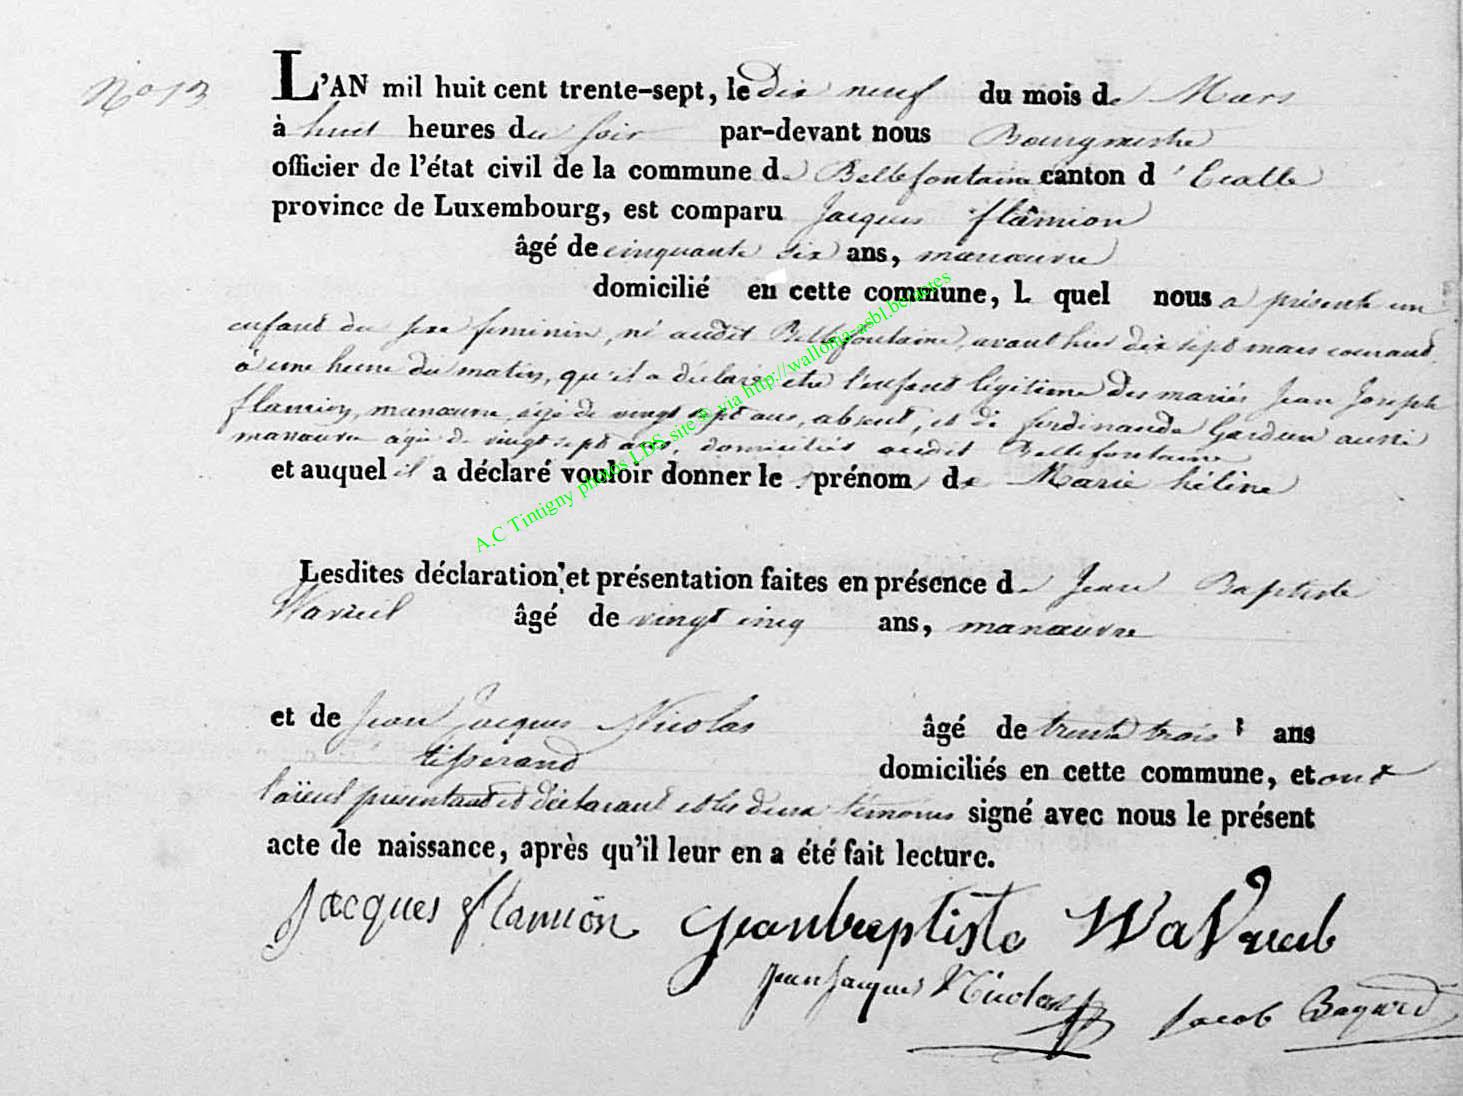 N° 13
L'AN mil huit cent trente-sept, le dix neuf du mois de Mars
à huit heures du soir par-devant nous Bourgmestre
officier de l'état civil de la commune de Bellefontaine canton d'Etalle
province de Luxembourg, est comparu Jacques flâmion
âgé de cinquante six ans, manœuvre
domicilié en cette commune, l quel nous a présenté un
enfant du sexe feminin, né audit Bellefontaine, avant hier dix sept mars courant
à une heure du matin, qu'il a déclaré etre l'enfant légitime des mariés Jean Joseph
flamion, manœuvre, agé de vingt sept ans, absent, et de ferdinande aussi
manœuvre agée de vingt sept ans, domiciliés audit Bellefontaine
et auquel il a déclaré vouloir donner le prénom de Marie hélène
Lesdites déclaration et présentation faites en présence de Jean Baptiste
âgé de vingt cinq ans, manœuvre
et de Jean Jacques Nicolas âgé de trente trois ans
tisserand
domiciliés en cette commune, et ont
l'aïeul présentant et déclarant et les deux témoins signé avec nous le présent
acte de naissance, après qu'il leur en a été fait lecture.
Jacques flamion Jeanbaptiste
Jean Jacques Nicolas Jacob Bagard
A.C Tintigny photos LDS site © via http://wallonia-asbl.be/antes